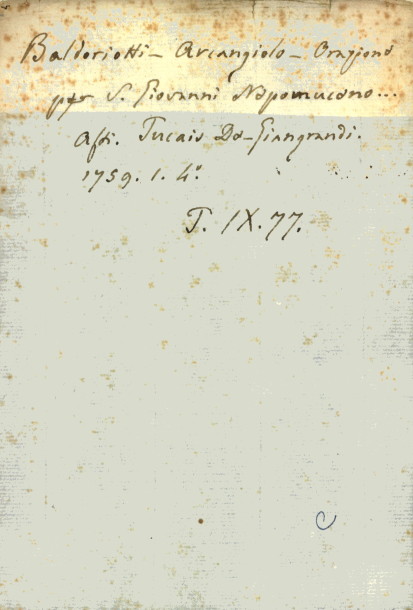 Baldoriotti - Arcangiolo - Orazione
per S. Giovanni Nepomuceno...
Assi. Tucais De-Giangrandi.
1759. 1. 4°.
T. IX. 77.
C